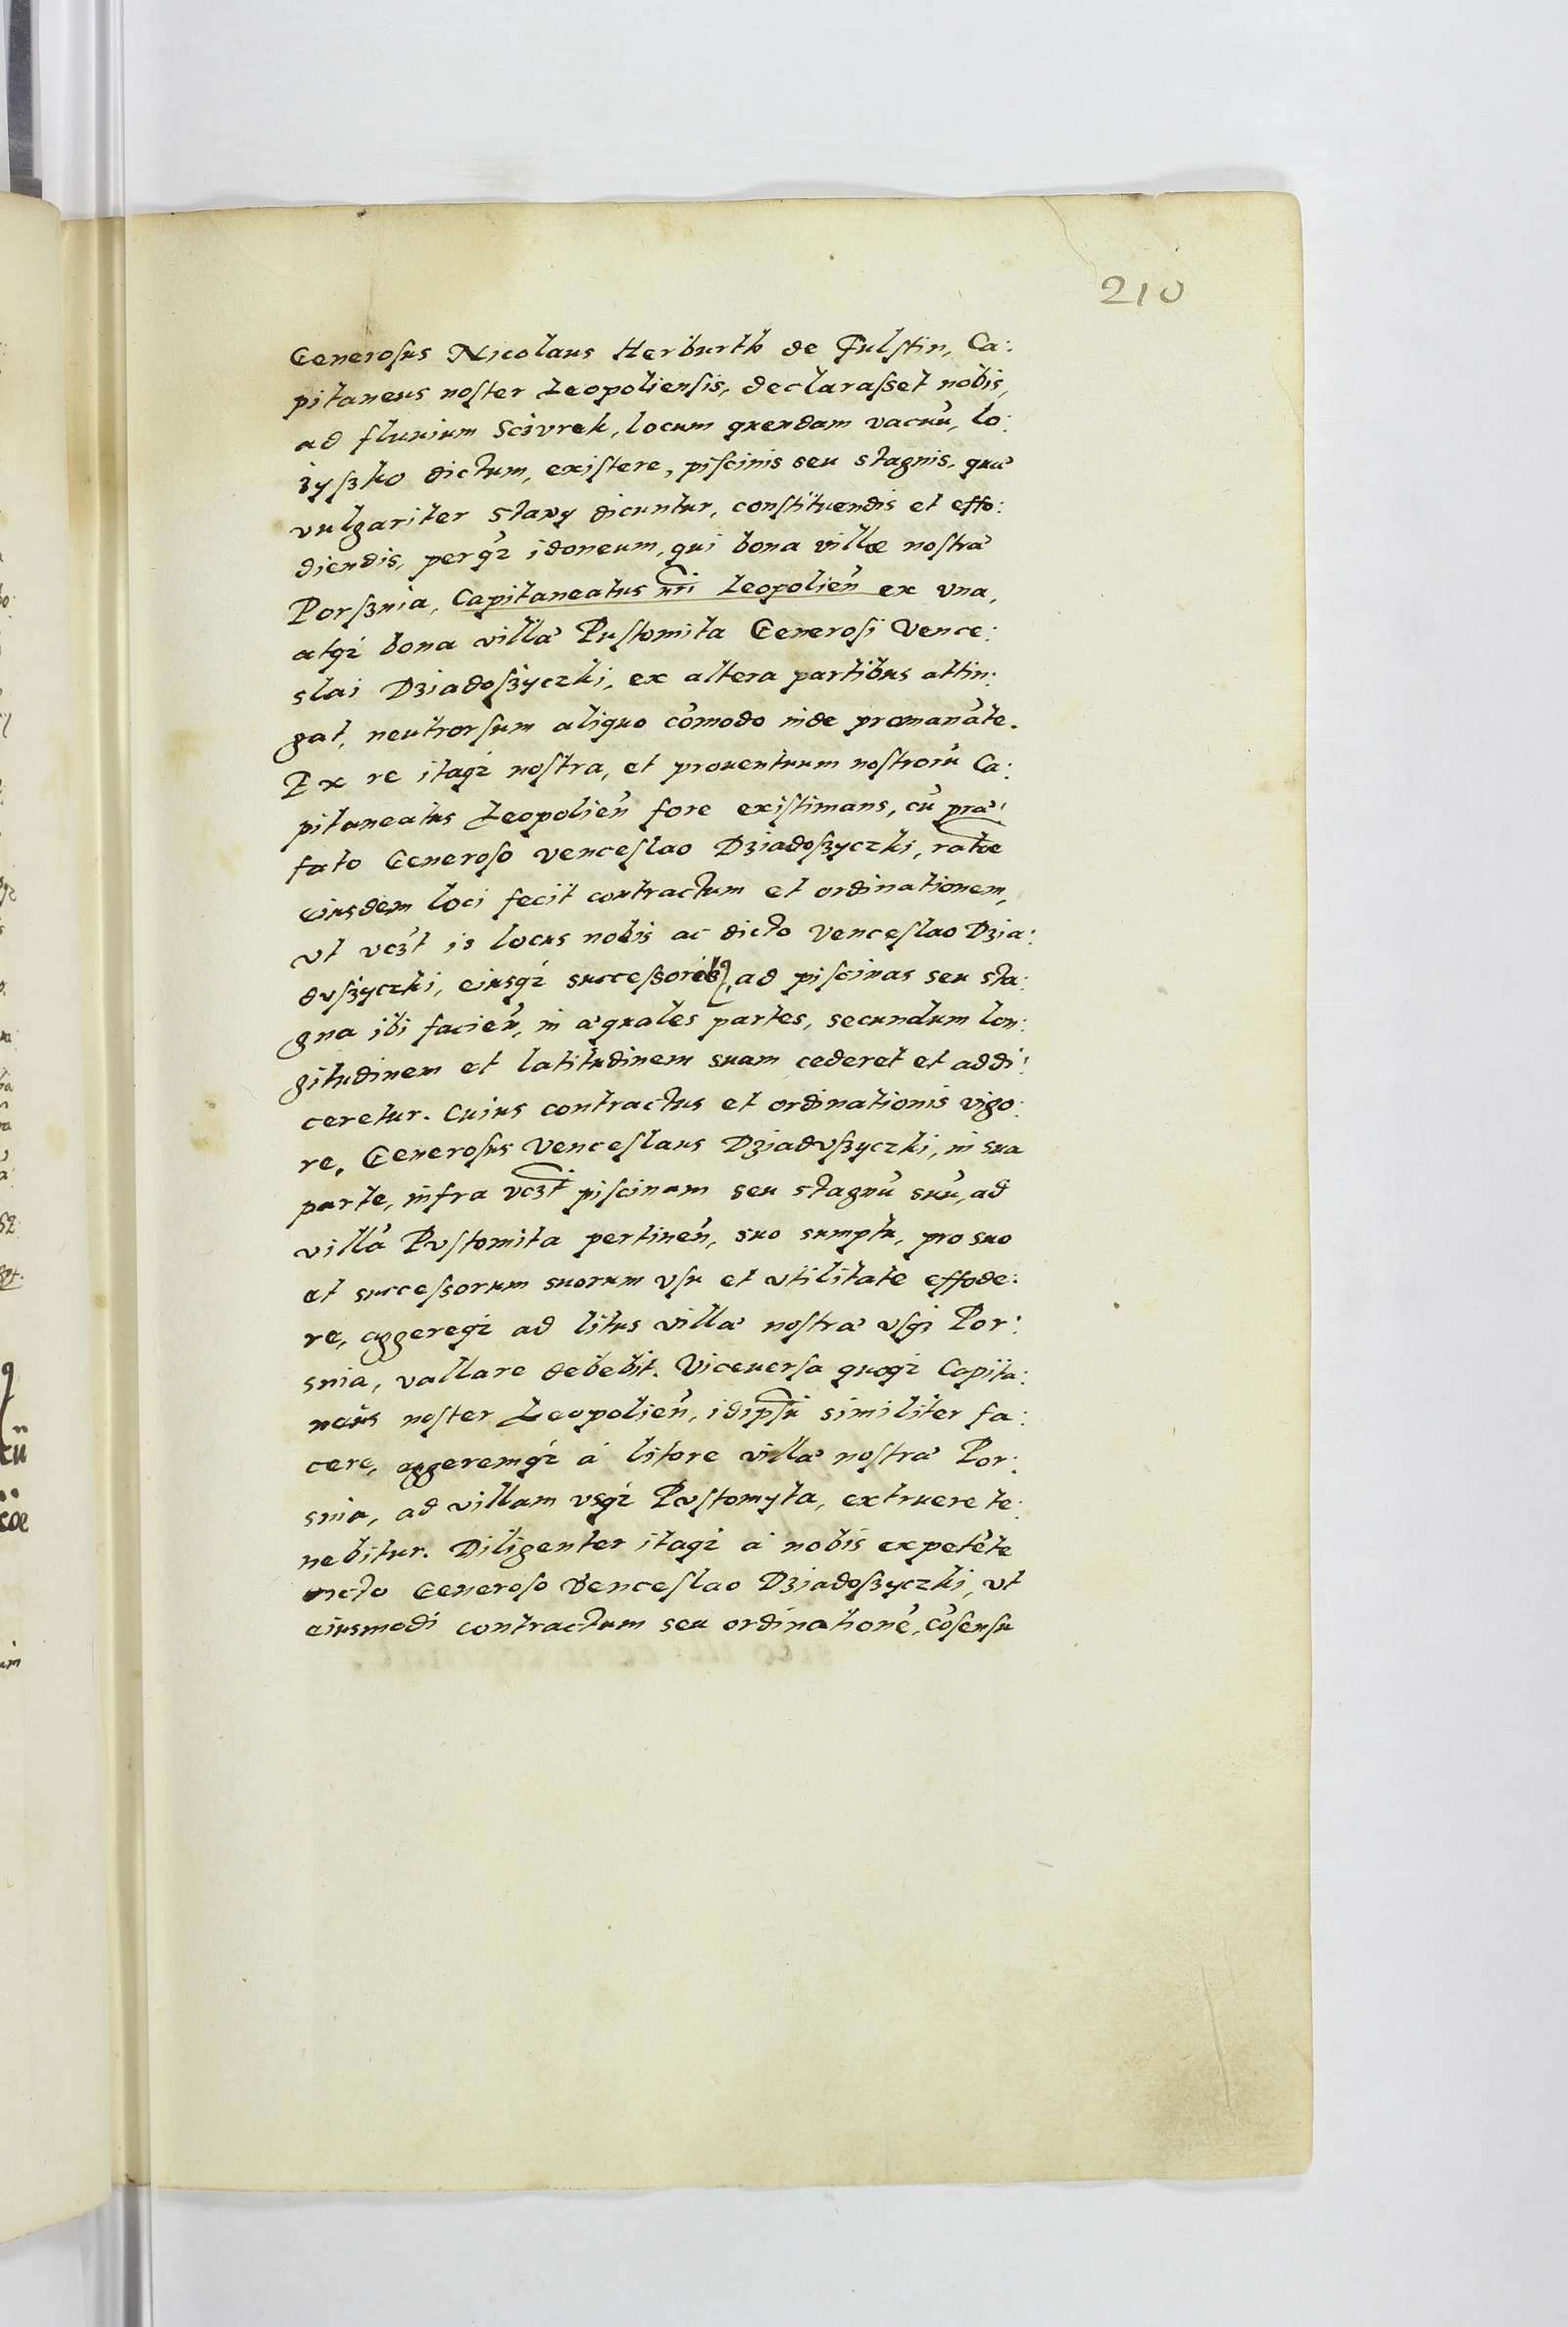 210
Generosus Nicolaus Herburth de Fulstin, Ca:
pitaneus noster Leopoliensis, declarasset nobis,
ad fluuium Sczurek, locum quendam vacuũ, lo:
zysko dictum, existere, piscinis seu stagnis, quæ
vulgariter stawy dicuntur, constituendis et effo:
diendis, perq; idoneum, qui bona villæ nostræ
Porsznia, Capitaneatus nri Leopolieñ ex vna,
atq; bona villæ Pustomita Generosi Vence:
slai Dziadoszyczki, ex altera partibus attin:
gat, neutrorsum aliquo cõmodo inde promanãte.
Ex re itaq; nostra, et prouentuum nostrorũ Ca:
pitaneatus Leopolieñ fore existimans, cũ præ:
fato Generoso Venceslao Dziadoszyczki, ratõe
eiusdem loci fecit contractum et ordinationem,
vt vczt is locus nobis ac dicto Venceslao Dzia:
duszyczki, eiusq; successorib9, ad piscinas seu sta:
gna ibi facieñ, in æquales partes, secundum lon:
gitudinem et latitudinem suam cederet et addi:
ceretur. Cuius contractus et ordinationis vigo:
re, Generosus Venceslaus Dziaduszyczki, in sua
parte, infra vczt piscinam seu stagnũ suũ, ad
villã Pustomita pertineñ, suo sumptu, pro suo
et successorum suorum vsu et vtilitate effode:
re, aggereq; ad litus villæ nostræ vsq; Por:
snia, vallare debebit. Viceuersa quoq; Capita:
neus noster Leopolieñ, idipsũ similiter fa:
cere, aggeremq; à litore villæ nostræ Por:
snia, ad villam vsq; Pustomyta, extruere te:
nebitur. Diligenter itaq; à nobis expetẽte
dicto Generoso Venceslao Dziadoszyczki, vt
eiusmodi contractum seu ordinationẽ, cõsensu